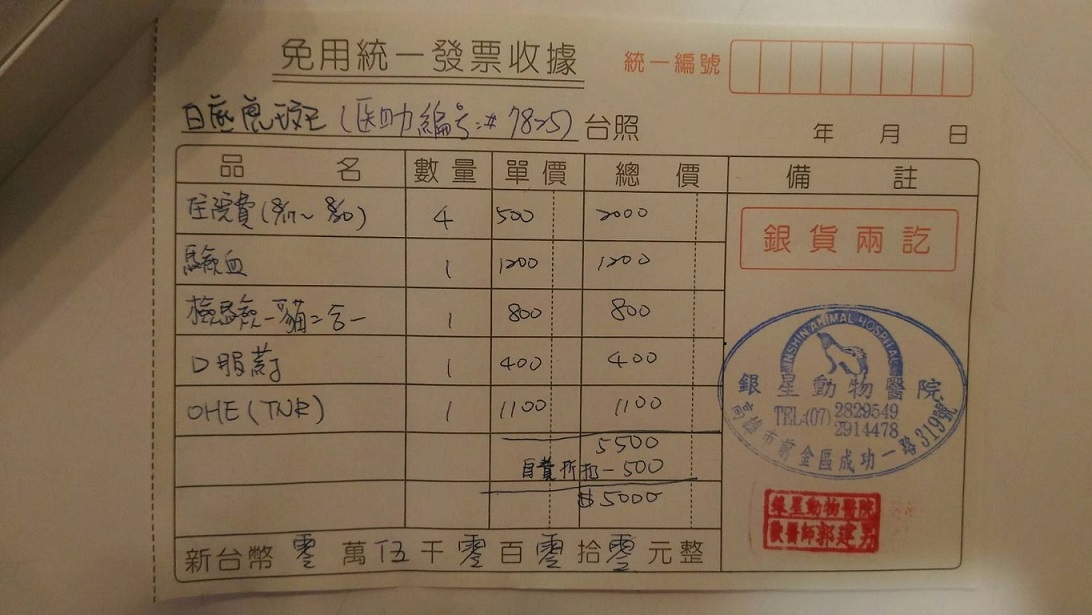 免用統一發票收據
統一編號
白底虎斑(医助編号:#7825) 台照
年 月 日
品名 數量 單價 總價 備註
住院費(8/17~8/20) 4 500 2000
驗血 1 1200 1200
檢驗-貓二合一 1 800 800
口服葯 1 400 400
OHE(TNR) 1 1100 1100
5500
自費折扣-500
$5000
新台幣零萬伍千零百零拾零元整
銀貨兩訖
INSHIN ANIMAL HOSPITAL
銀星動物醫院
TEL:(07)2829549
2914478
高雄市前金區成功一路319號
銀星動物醫院
獸醫師郭建男